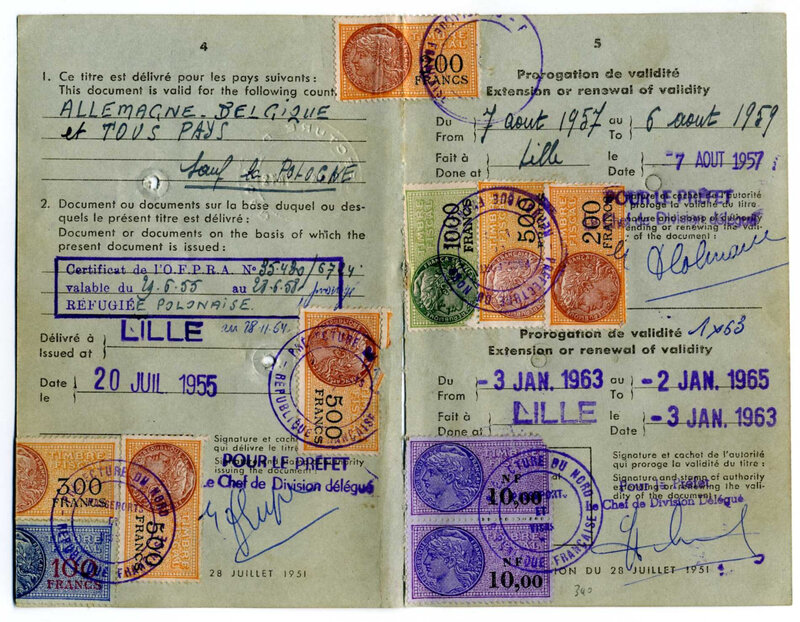 4
1. Ce titre est délivré pour les pays suivants :
This document is valid for the following count
ALLEMAGNE-BELGIQUE
et TOUS PAYS
sauf la POLOGNE
2. Document ou documents sur la base duquel ou des-
quels le présent titre est délivré :
Document or documents on the basis of which the
present document is issued :
Certificat de l'O.F.P.R.A. N°
valable du 29.6.55 au 28.6.58
REFUGIÉE POLONAISE
Délivré à
Issued at
LILLE
Date
le
20 JUIL 1955
Signature et cachet
qui délivre le titre
issuing the document :
POUR LE PRÉFET
Le Chef de Division délégué
28 JUILLET 1951
TIMBRE FISCAL
00 FRANCS
500 FRANCS
PREFECTURE DU NORD
REPUBLIQUE FRANÇAISE
TIMBRE FISCAL
300 FRANCS
500 FRANCS
100 FRANCS
PASSEPORTS
5
Prorogation de validité
Extension or renewal of validity
Du
From
7 aout 1957
au
To
6 aout 1959
Fait à
Done at
Lille
le
Date
-7 AOUT 1957
POUR LE PREFET
Le Chef de Division délégué
1000 FRANCS
500 FRANCS
200 FRANCS
PREFECTURE DU NORD
Prorogation de validité 1x63
Extension or renewal of validity
Du
From
-3 JAN. 1963
au
To
-2 JAN. 1965
Fait à
Done at
LILLE
le
Date
-3 JAN. 1963
Signature et cachet de l'autorité
qui proroge la validité du titre :
Signature and stamp of authority
dity of the document :
Pour le Préfet
Le Chef de Division Délégué
NF
10,00
NF
10,00
ET VISAS
REPUBLIQUE FRANÇAISE
ION DU 28 JUILLET 1951
340